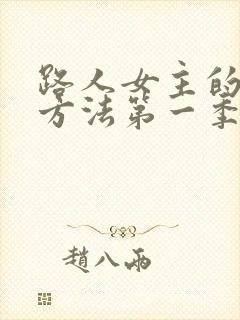 路人女主的
方法第一季
趙八兩